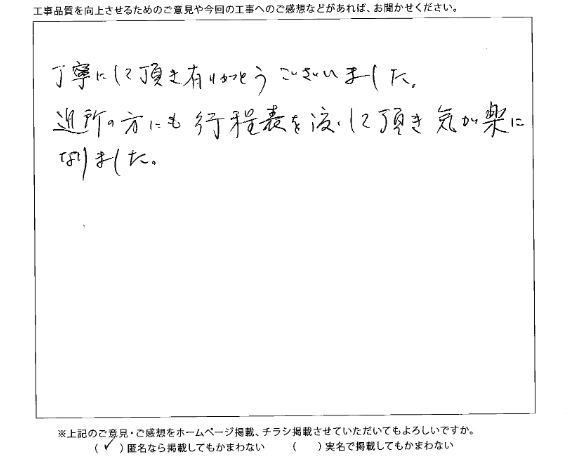 工事品質を向上させるためのご意見や今回の工事へのご感想などがあれば、お聞かせください。
丁寧にして頂き有りがとうございました。
近所の方にも行程表を渡して頂き気が楽に
なりました。
※上記のご意見・ご感想をホームページ掲載、チラシ掲載させていただいてもよろしいですか。
(✓)匿名なら掲載してもかまわない ( )実名で掲載してもかまわない